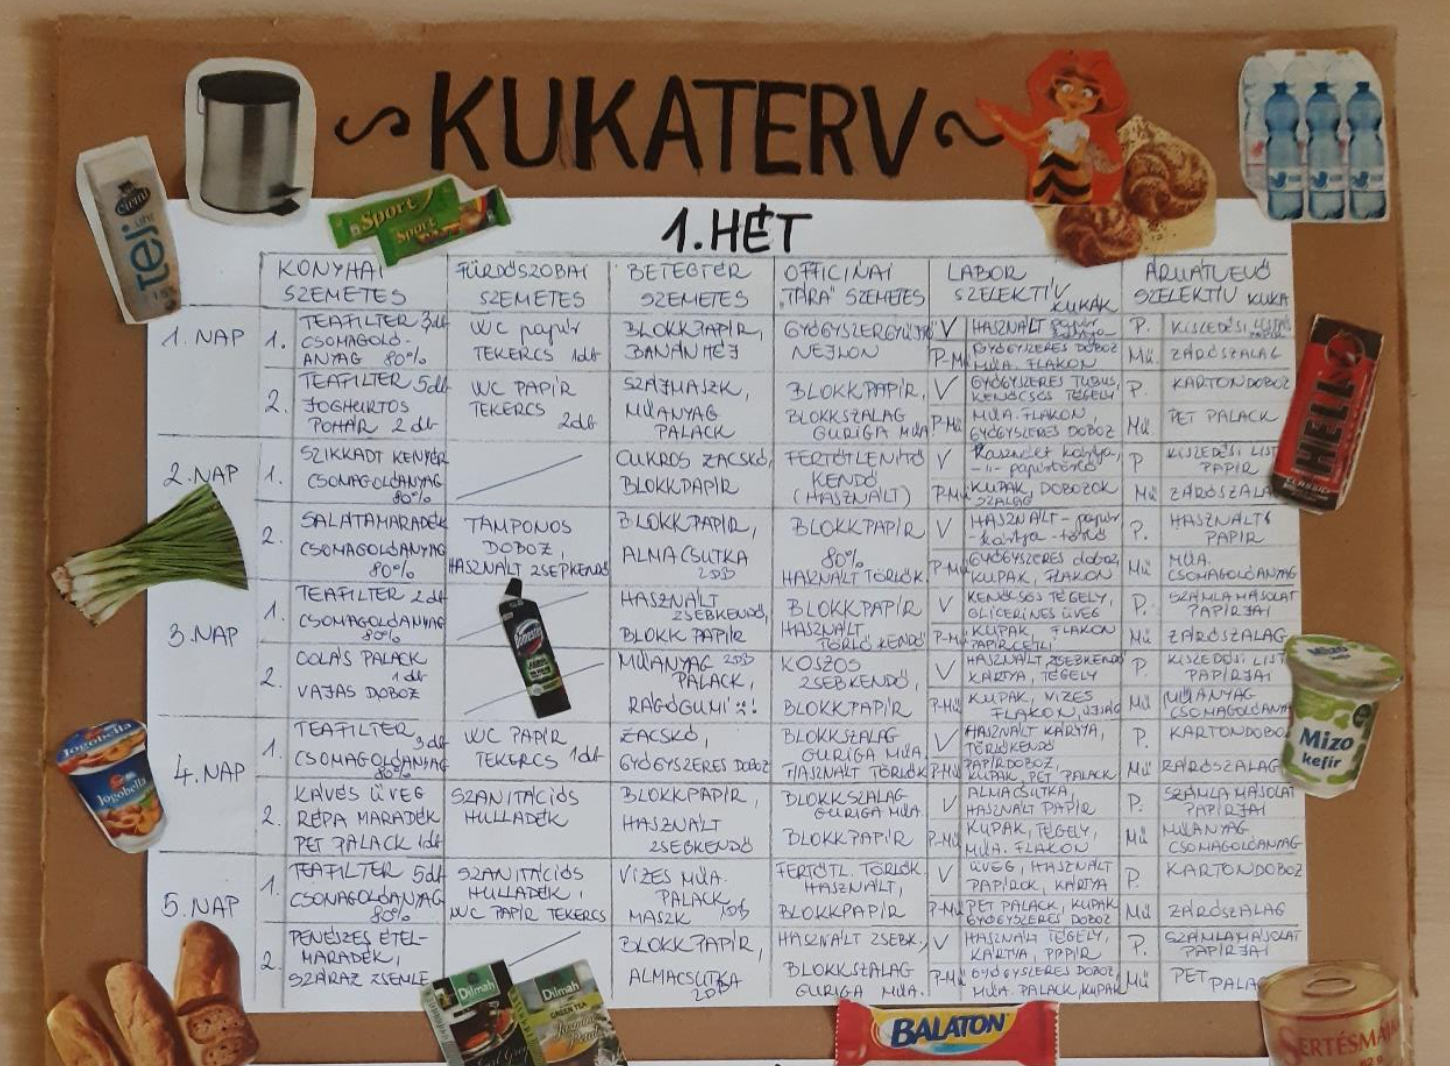 ~KUKATERV~
1.HÉT
KONYHAI
SZEMETES
FÜRDŐSZOBAI
SZEMETES
BETEGTÉR
SZEMETES
OFFICINAI
„TÁRA” SZEMETES
LABOR
SZELEKTÍV
KUKÁK
ÁRUÁTVEVŐ
SZELEKTÍV KUKA
1. NAP
1.
TEAFILTER 3db
CSOMAGOLÓ-
ANYAG 80%
WC papír
TEKERCS 1db
BLOKKPAPÍR,
BANÁNHÉJ
NEJLON
V
HASZNÁLT
P-Mű
GYÓGYSZERES DOBOZ
MŰA. FLAKON
P.
KISZEDÉSI
Mű.
ZÁRÓSZALAG
2.
TEAFILTER 5db
JOGHURTOS
POHÁR 2 db
WC PAPÍR
TEKERCS
2db
SZÁJMASZK,
MŰANYAG
PALACK
BLOKKPAPÍR,
BLOKKSZALAG
GURIGA MŰA
V
GYÓGYSZERES TUBUS,
KENŐCSÖS TÉGELY
P-Mű
MŰA. FLAKON,
GYÓGYSZERES DOBOZ
P.
KARTONDOBOZ
Mű.
PET PALACK
2. NAP
1.
SZIKKADT KENYÉR
CSOMAGOLÓANYAG
80%
CUKROS ZACSKÓ,
BLOKKPAPÍR
FERTŐTLENÍTŐ
KENDŐ
(HASZNÁLT)
V
Használt kártya,
-"- papírtörlő
P-Mű
KUPAK, DOBOZOK
SZALAG
P
KISZEDÉSI LIST
PAPÍR
Mű
ZÁRÓSZALA
2.
SALÁTAMARADÉK
CSOMAGOLÓANYAG
80%
TAMPONOS
DOBOZ,
HASZNÁLT ZSEPKENDŐ
BLOKKPAPÍR,
ALMACSUTKA
2DB
BLOKKPAPÍR
80%
HASZNÁLT TÖRLŐK.
V
HASZNÁLT - papír
- kártya - törlő
P-Mű
GYÓGYSZERES doboz,
KUPAK, FLAKON
P.
HASZNÁLT
PAPÍR
Mű
MŰA.
CSOMAGOLÓANYAG
3. NAP
1.
TEAFILTER 2db
CSOMAGOLÓANYAG
80%
HASZNÁLT
ZSEBKENDŐ,
BLOKK PAPÍR
BLOKKPAPÍR
HASZNÁLT
TÖRLŐ KENDŐ
V
KENŐCSÖS TÉGELY,
GLICERINES ÜVEG
P-Mű
KUPAK, FLAKON
PAPÍRCETLI
P.
SZÁMLAMÁSOLAT
PAPÍRJAI
Mű
ZÁRÓSZALAG
2.
COLÁS PALACK
1db
VAJAS DOBOZ
MŰANYAG 2DB
PALACK,
RÁGÓGUMI !
KOSZOS
ZSEBKENDŐ,
BLOKKPAPÍR
V
HASZNÁLT ZSEBKENDŐ
KÁRTYA, TÉGELY
P-Mű
KUPAK, VIZES
FLAKON, ÚJSÁG
P.
KISZEDÉSI LIST
PAPÍRJAI
Mű
MŰANYAG
CSOMAGOLÓANY
4. NAP
1.
TEAFILTER,
3db
CSOMAGOLÓANYAG
80%
WC PAPÍR
TEKERCS 1db
ZACSKÓ,
GYÓGYSZERES DOBOZ
BLOKKSZALAG
GURIGA MŰA.
HASZNÁLT TÖRLŐK
V
HASZNÁLT KÁRTYA,
TÖRLŐKENDŐ
P-Mű
PAPÍRDOBOZ,
KUPAK, PET PALACK
P.
KARTONDOBO
Mű
ZÁRÓSZALAG
2.
KÁVÉS ÜVEG
RÉPA MARADÉK
PET PALACK 1db
SZANITÁCIÓS
HULLADÉK
BLOKKPAPÍR,
HASZNÁLT
ZSEBKENDŐ
BLOKKSZALAG
GURIGA MŰA.
BLOKKPAPÍR
V
ALMACSUTKA,
HASZNÁLT PAPÍR
P-Mű
KUPAK, TÉGELY,
MŰA. FLAKON
P.
SZÁMLA MÁSOLAT
PAPÍRJAI
Mű
MŰANYAG
CSOMAGOLÓANYAG
5. NAP
1.
TEAFILTER 5db
CSOMAGOLÓANYAG
80%
SZANITÁCIÓS
HULLADÉK,
WC PAPÍR TEKERCS
VIZES MŰA.
PALACK
MASZK 1DB
FERTŐTL. TÖRLŐK.
HASZNÁLT,
BLOKKPAPÍR
V
ÜVEG, HASZNÁLT
PAPÍROK, KÁRTYA
P-Mű
PET PALACK, KUPAK
GYÓGYSZERES DOBOZ
P.
KARTONDOBOZ
Mű
ZÁRÓSZALAG
2.
PENÉSZES ÉTEL-
MARADÉK,
SZÁRAZ ZSEMLE
BLOKKPAPÍR,
ALMACSUTKA
2DB
HASZNÁLT ZSEBK.,
BLOKKSZALAG
GURIGA MŰA.
V
HASZNÁLT TÉGELY,
KÁRTYA, PAPÍR
P-Mű
GYÓGYSZERES DOBOZ,
MŰA. PALACK, KUPAK
P.
SZÁMLAMÁSOLAT
PAPÍRJAI
Mű
PET PALA
tej
Sport
Sport
HELL
CLASSIC
Domestos
Jogobella
Jogobella
Mizo
Mizo
kefír
Dilmah
Dilmah
GREEN TEA
BALATON
SERTÉSMÁJ